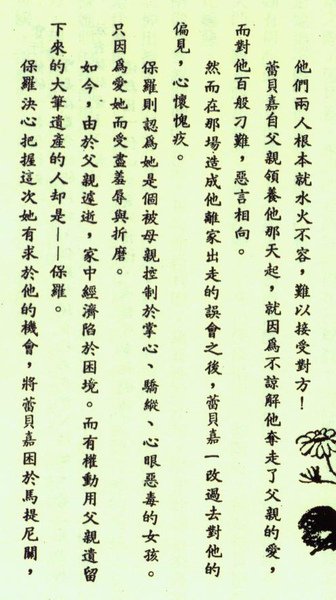 他們兩人根本就水火不容，難以接受對方！
蕾貝嘉自父親領養他那天起，就因為不諒解他奪走了父親的愛，
而對他百般刁難，惡言相向。
然而在那場造成他離家出走的誤會之後，蕾貝嘉一改過去對他的
偏見，心懷愧疚。
保羅則認為她是個被母親控制於掌心、驕縱、心眼惡毒的女孩。
只因為愛她而受盡羞辱與折磨。
如今，由於父親遽逝，家中經濟陷於困境。而有權動用父親遺留
下來的大筆遺產的人却是——保羅。
保羅決心把握這次她有求於他的機會，將蕾貝嘉困於馬提尼關，